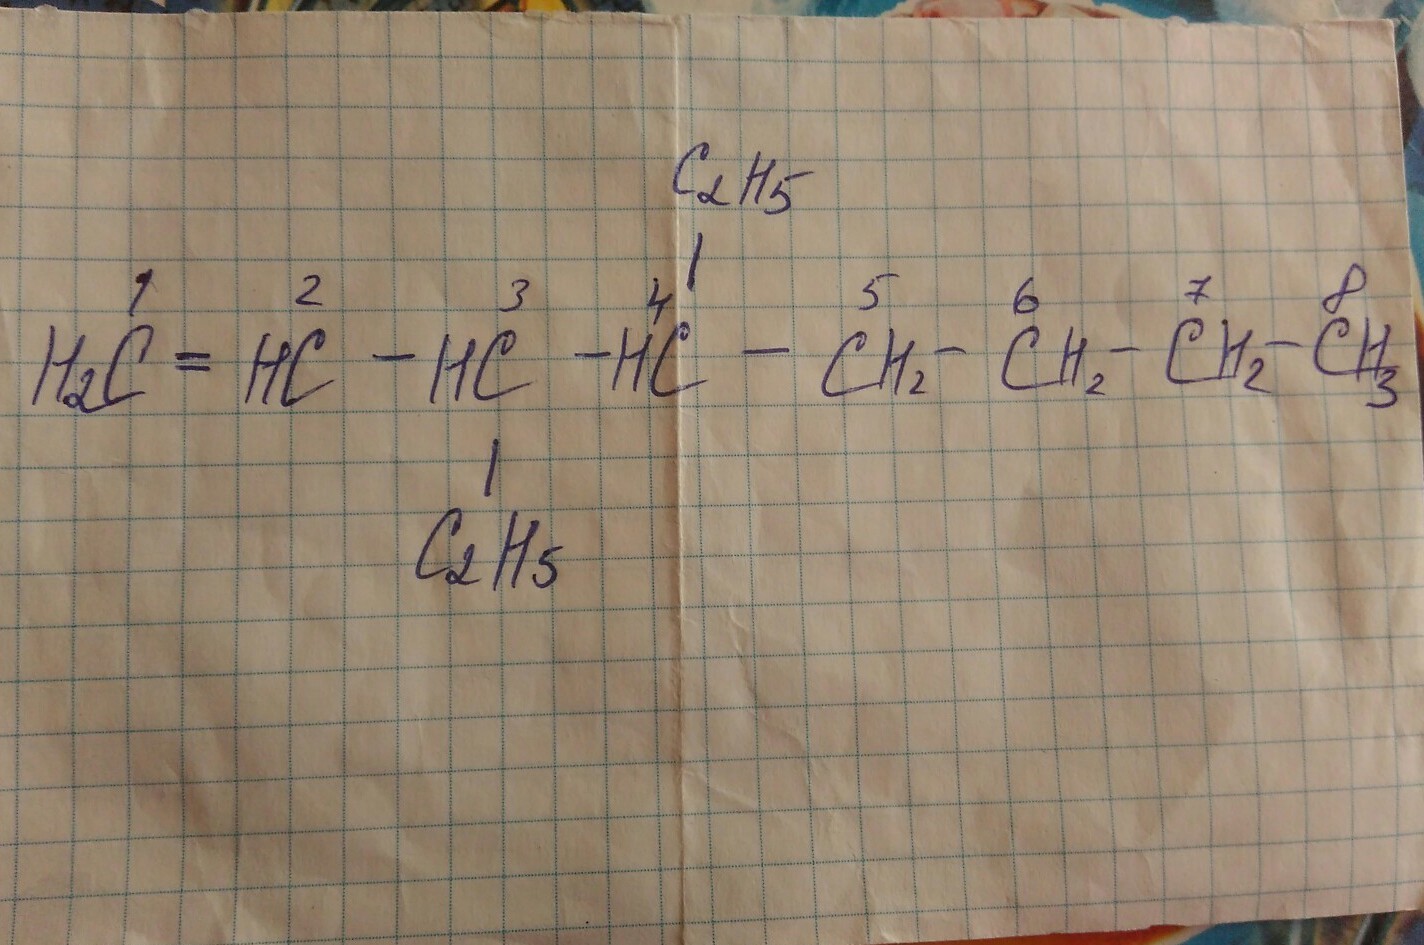 C₂H₅
|
1 2 3 4 5 6 7 8
H₂C = HC - HC - HC - CH₂ - CH₂ - CH₂ - CH₃
|
C₂H₅